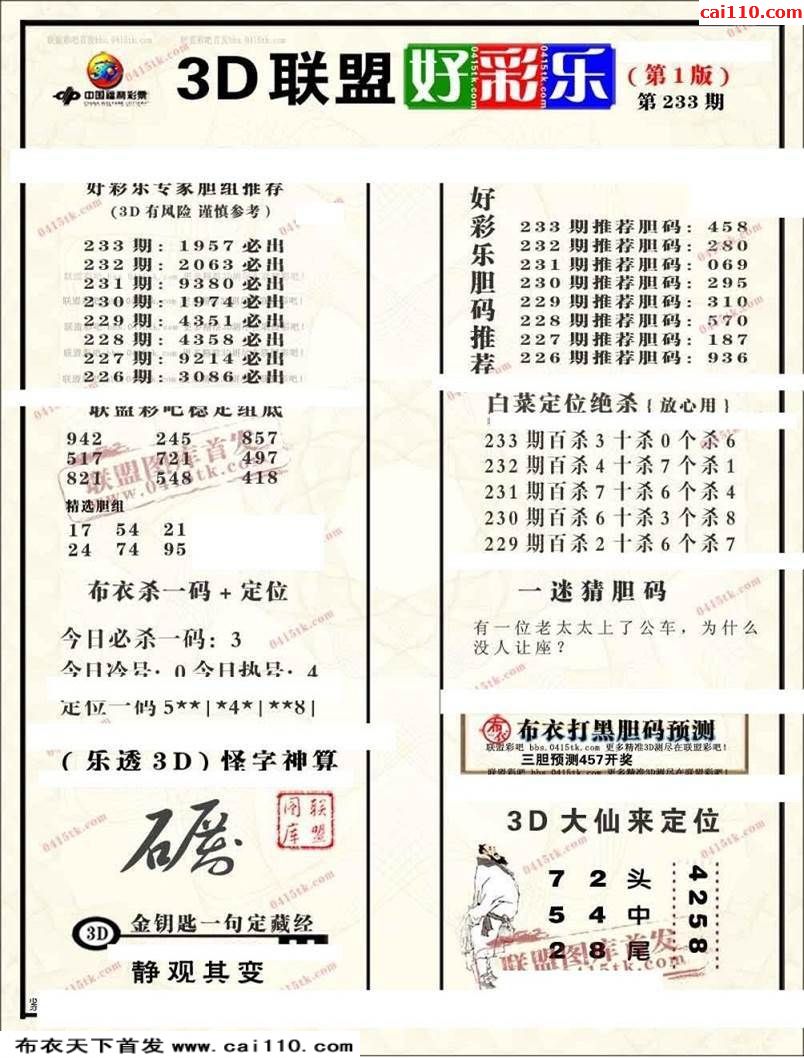 cai110.com
联盟彩吧首发bbs.0415tk.com 联盟彩吧首发bbs.0415tk.com
中国福利彩票
CHINA WELFARE LOTTERY
3D联盟好彩乐
0415tk.com
(第1版)
第233期
好彩乐专家胆组推荐
(3D有风险 谨慎参考)
233期: 1957必出
232期: 2063必出
231期: 9380必出
230期: 1974必出
229期: 4351必出
228期: 4358必出
227期: 9214必出
226期: 3086必出
联盟彩吧稳定组底
942 245 857
517 721 497
821 548 418
联盟图库首发
www.0415tk.com
精选胆组
17 54 21
24 74 95
布衣杀一码+定位
今日必杀一码: 3
今日冷号: 0 今日热号: 4
定位一码 5**|*4*|**8|
(乐透3D)怪字神算
联盟图库
3D 金钥匙一句定藏经
静观其变
好彩乐胆码推荐
233期推荐胆码: 458
232期推荐胆码: 280
231期推荐胆码: 069
230期推荐胆码: 295
229期推荐胆码: 310
228期推荐胆码: 570
227期推荐胆码: 187
226期推荐胆码: 936
白菜定位绝杀{放心用}
233期百杀3十杀0个杀6
232期百杀4十杀7个杀1
231期百杀7十杀6个杀4
230期百杀6十杀3个杀8
229期百杀2十杀6个杀7
一迷猜胆码
有一位老太太上了公车，为什么
没人让座？
布衣 布衣打黑胆码预测
联盟彩吧 bbs.0415tk.com 更多精准3D测尽在联盟彩吧!
三胆预测457开奖
联盟彩吧 bbs.0415tk.com 更多精准3D测尽在联盟彩吧!
3D大仙来定位
7 2 头
5 4 中
2 8 尾
4258
联盟图库首发
布衣天下首发 www.cai110.com